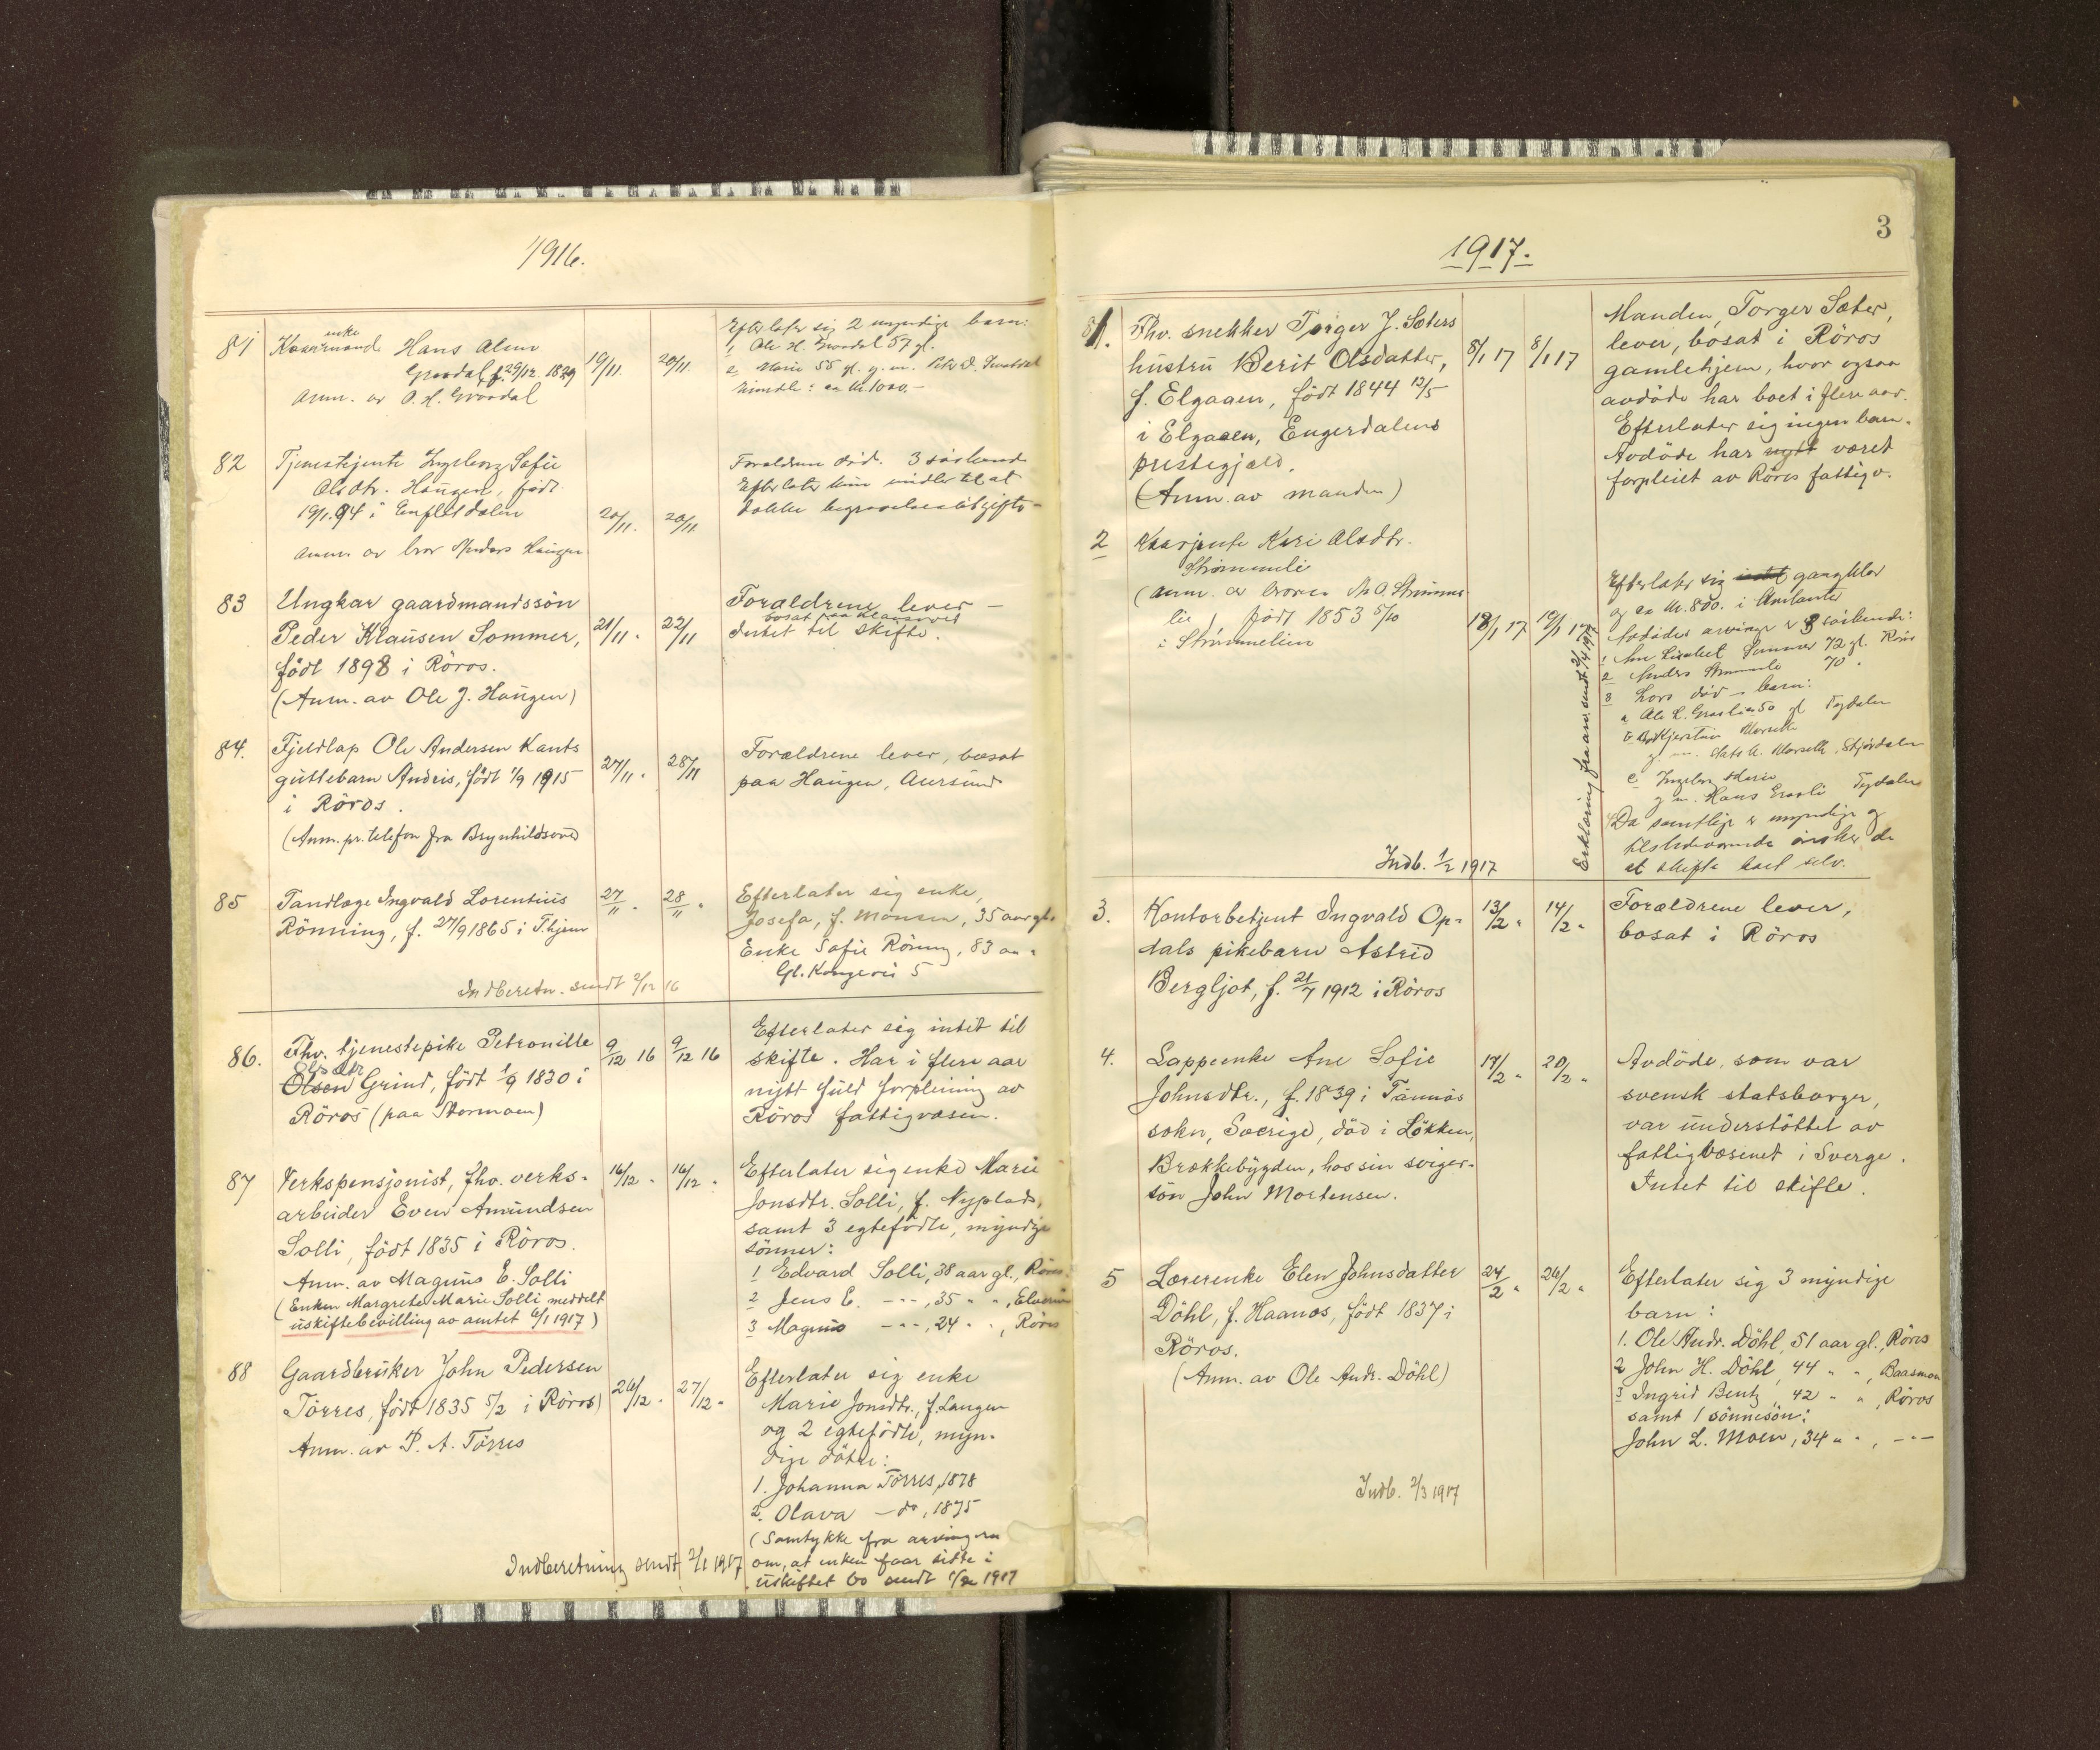 1916.
81 Kaarmands enke Hans Olsen
Graadal, f. 29/12 1829
Anm. av O. H. Graadal
19/11. 20/11.
Efterlater sig 2 myndige barn:
1 Ole H. Graadal 57 gl.
2 Marie 55 gl. g. m.
Midle: ca Kr. 1000.-
82 Tjenestejente Ingeborg Sofie
Olsdtr. Haugen, født
19/1.94 i
Anm. av bror Anders Haugen
20/11. 20/11.
Forældrene død. 3 søskende
Efterlater kun midler til at
dække begravelsesutgifte-
83 Ungkar gaardmandssön
Peder Klausen Sommer,
födt 1898 i Röros.
(Anm. av Ole J. Haugen)
21/11. 22/11
Forældrene lever -
bosat paa Klausvold
Intet til skifte.
84. Fjeldlap Ole Andersen Kants
guttebarn Andris, födt 1/9 1915
i Röros.
(Anm. pr. telefon fra Brynhildsvold
27/11. 28/11
Forældrene lever, bosat
paa Haugen, Aursund
85 Tandlæge Ingvald Lorentius
Rönning, f. 27/9 1865 i T.hjem
27/11 " 28/11 "
Efterlater sig enke,
Josefa, f. Monsen, 35 aar gl.
Enke Sofie Röning, 83 aa "
Gl. Kongevei 5
Indberetn. sendt 2/12 16
86. Fhv. tjenestepike Petronille
Elisdtr
Olsen Grind, födt 1/9 1830 i
Röros (paa Stormoen)
9/12 16 9/12 16
Efterlater sig intet til
skifte. Har i flere aar
nytt fuld forpleining av
Röros fattigvæsen.
87 Verkspensjonist, fhv. verks-
arbeider Even Amundsen
Solli, födt 1835 i Röros.
Anm. av Magnus E. Solli
(Enken Margrete Marie Solli meddelt
uskiftebevilling av amtet 6/1 1917)
16/12 " 16/12 "
Efterlater sig enke Marie
Jonsdtr. Solli, f. Nyplads,
samt 3 egtefödte, myndige
sönner:
1 Edvard Solli, 38 aar gl., Röros.
2 Jens E. -"-, 35 " ", Elverum
3 Magnus -"-, 24 " ", Röros
88 Gaardbruker John Pedersen
Törres, födt 1835 5/2 i Röros)
Anm. av P. A. Törres
26/12. 27/12.
Efterlater sig enke
Marie Jonsdtr., f. Langen
og 2 egtefödte, myn-
dige dötre:
1. Johanna Törres, 1878
2. Olava - do, 1875
(Samtykke fra arvingerne
om, at enken faar sitte i
uskiftet bo sendt 1/2 1917
Indberetning sendt 2/1 1917
3
1917.
1. Fhv. snekker Torger J. Sæters
hustru Berit Olsdatter,
f. Elgaaen, födt 1844 12/5
i Elgaaen, Engerdalens
prestegjæld.
(Anm. av manden)
8/1 17 8/1 17
Manden, Torger Sæter,
lever, bosat i Röros
gamlehjem, hvor ogsaa
avdöde har boet i flere aar.
Efterlater sig ingen barn.
Avdöde har nytt været
forpleiet av Röros fattigv.
2 Kaarjente Kari Olsdtr.
Strömmeli
(anm. av broren A. O. Strömme-
lie) födt 1853 5/10
i Strömmelien
18/1 17 19/1 17
Erklæring fra arv. sendt 2/4 1917
Efterlater sig intet gangklær
og ca kr. 800. i kontanter
Avdödes arvinger er 3 söskende:
1 Ane Lisabet Sommer 72 gl. Röros
2 Anders Strömmeli 70 "
3 Lars död - barn:
a Ole L. Græsli 50 gl Tydalen
b Kjerstine Morseth
g. m. Morseth, Stjördalen
c Ingeborg Marie
g m. Hans Græsli Tydalen
Da samtlige er myndige og
tilstedeværende önsker de
at skifte boet selv.
Indb. 1/2 1917
3. Kontorbetjent Ingvald Op-
dals pikebarn Astrid
Bergljot, f. 21/7 1912 i Röros
13/2 " 14/2 "
Forældrene lever,
bosat i Röros
4. Lappeenke Ane Sofie
Johnsdtr., f. 1839 i Tännäs
sokn, Sverige, död i Lökken,
Brækkebygden, hos sin sviger-
sön John Mortensen.
17/2 " 20/2 "
Avdöde, som var
svensk statsborger,
var understöttet av
fattigvæsenet i Sverge.
Intet til skifte.
5 Lærerenke Elen Johnsdatter
Döhl, f. Haanæs, födt 1837 i
Röros.
(Anm. av Ole Andr. Döhl)
24/2 " 26/2 "
Efterlater sig 3 myndige
barn:
1. Ole Andr. Döhl, 51 aar gl., Röros
2 John H. Döhl, 44 " ", Baasmoen
3 Ingrid Bentz, 42 " ", Röros
samt 1 sönnesön:
John L. Moen, 34 " ", -"-
Indb. 2/3 1917